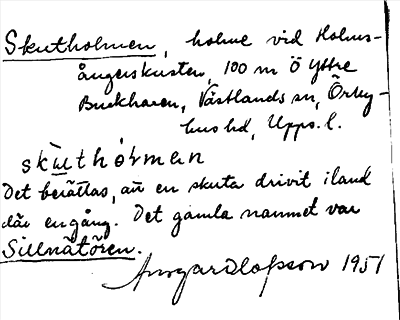 Skutholmen, holme vid Holms-
ångerskusten, 100 m Ö Yttre
Buckharen, Västlands sn, Örby-
hus hd, Upps. l.
skùthólmen
Det berättas, att en skuta drivit iland
där en gång. Det gamla namnet var
Sillnätören.
Ansgar Olofsson 1951